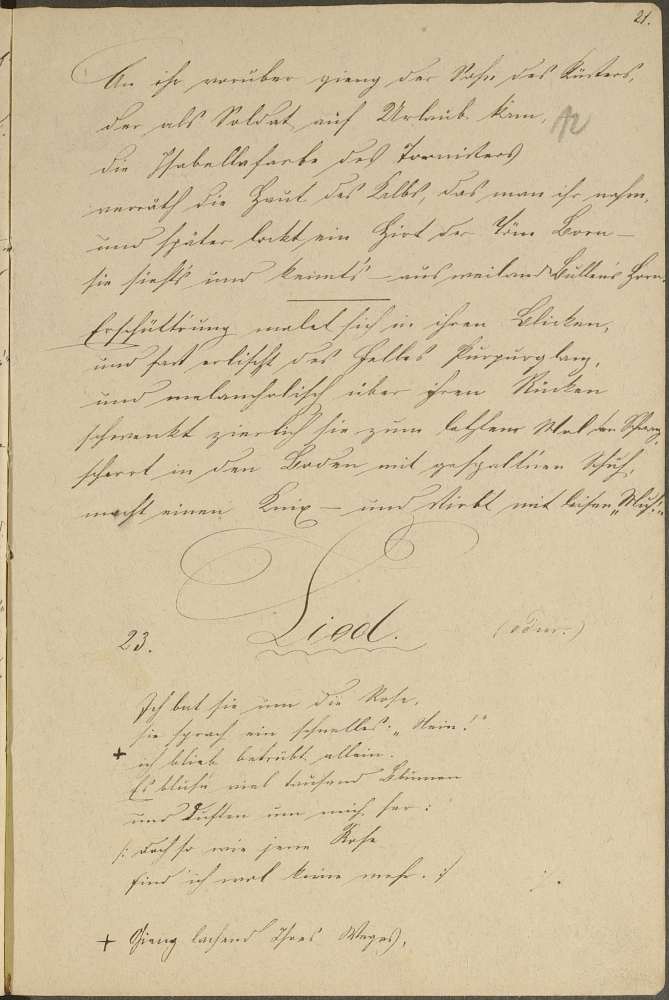 21.
An ihr vorüber gieng der Sohn des Küsters,
der als Soldat auf Urlaub kam,
die Isabellafarbe des Tornisters
verräth die Haut des Kalbs, das man ihr nahm,
und später lockt ein Hirt der Töne Born –
sie sieht's und kennt's – aus weiland Bullen's Horn.
Erschütt'rung malet sich in ihren Blicken,
und fast erlischt des Felles Purpurglanz,
und melancholisch über ihren Rücken
schwenkt zierlich sie zum letzten Mal den Schwanz,
scharrt in den Boden mit gespalt'nen Schuh,
macht einen Knix – und stirbt mit leisen „Muh!"
23. Lied.
Ich bat sie um die Rose,
sie sprach ein schnelles: „Nein!"
+ ich blieb betrübt allein.
Es blüh'n viel tausend Blumen
und Duften um mich her:
/: Doch so wie jene Rose
find' ich wol keine mehr. :/
+ Gieng lachend Ihres Weges,